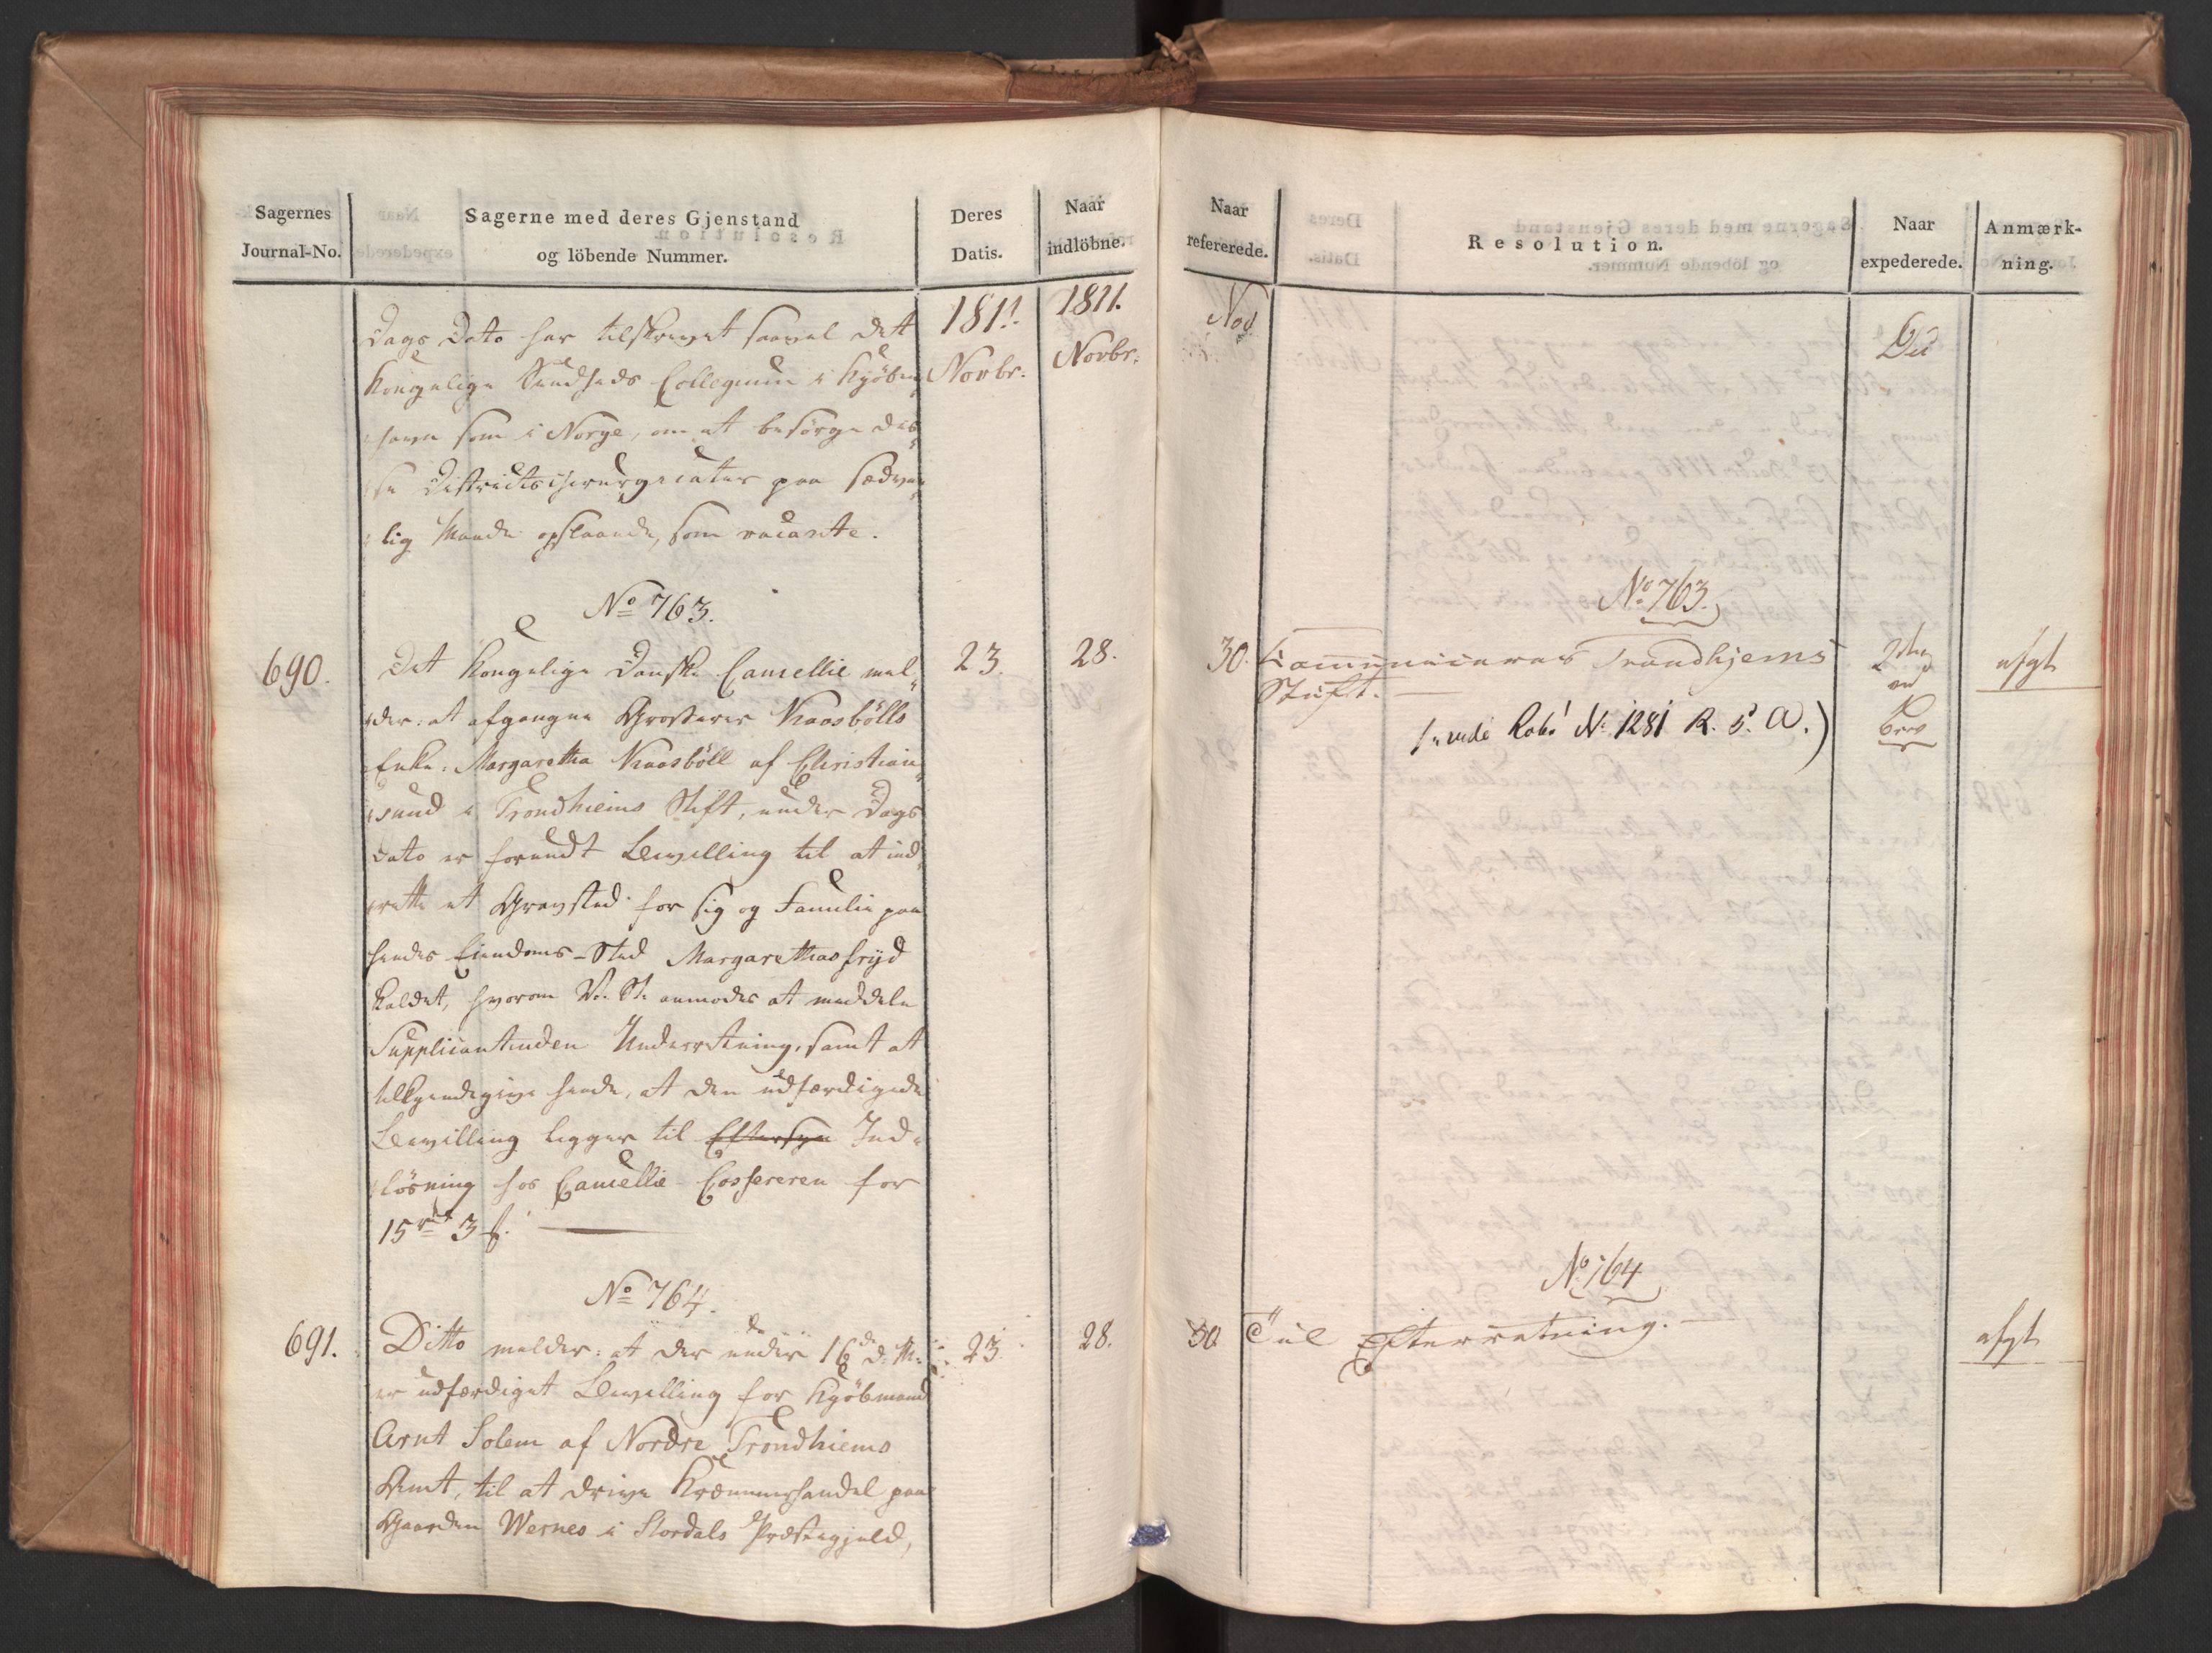 Sagernes
Journal-No.
Sagerne med deres Gjenstand
og löbende Nummer.
Deres
Datis.
Naar
indlöbne.
1811.
Novbr.
1811.
Novbr.
Dags Dato har tilskrevet saavel det
Kongelige Sundheds Collegium i Kjöben
havn som i Norge, om at besörge dis
se Districtschirurgicater paa sædvan
lig Maade opslaaede, som vacante.
No 763.
690.
Det Kongelige Danske Cancellie mel
der: at afgangne Grosserer Knoosbölls
Enke, Margaretha Knoosböll af Christian
sund i Trondhiems Stift, under Dags
Dato er forundt Bevilling til at ind
rette et Gravsted for sig og Familie paa
hendes Eiendoms-Sted Margarethasfryd
kaldet, hvorom V. St. anmodes at meddele
Supplicantinden Underretning, samt at
tilkjendegive hende, at den udfærdigede
Bevilling ligger til Eftersyn Ind
lösning hos Cancellie-Cassereren for
15 rd 3 ß.
23.
28.
No 764.
691.
Ditto melder: at der under 16de d. M.
er udfærdiget Bevilling for Kjöbmand
Arnt Solem af Nordre Trondhiems
Amt, til at drive Kræmmerhandel paa
Gaarden Wernes i Stordals Præstegjeld,
23.
28.
Naar
refererede.
Resolution.
Naar
expederede.
Anmærk-
ning.
Nov.
No 763.
30. Communiceres Trondhjems
Stift.
afgt
(vide Rab. N. 1281 R. 5. A.)
No 764
30. Til Efterretning.
afgt